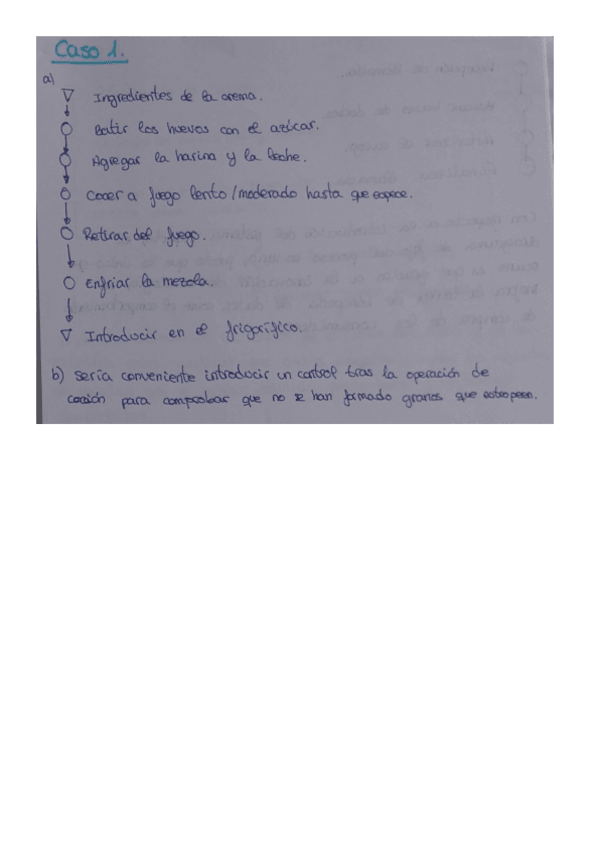 Caso 1.
a)
Ingredientes de la crema.
Batir los huevos con el azúcar.
Agregar la harina y la leche.
Cocer a fuego lento/moderado hasta que espece.
Retirar del fuego.
Enfriar la mezcla.
Introducir en el frigorífico.
b) Sería conveniente introducir un control tras la operación de
cocción para comprobar que no se han formado granos que estropeen.